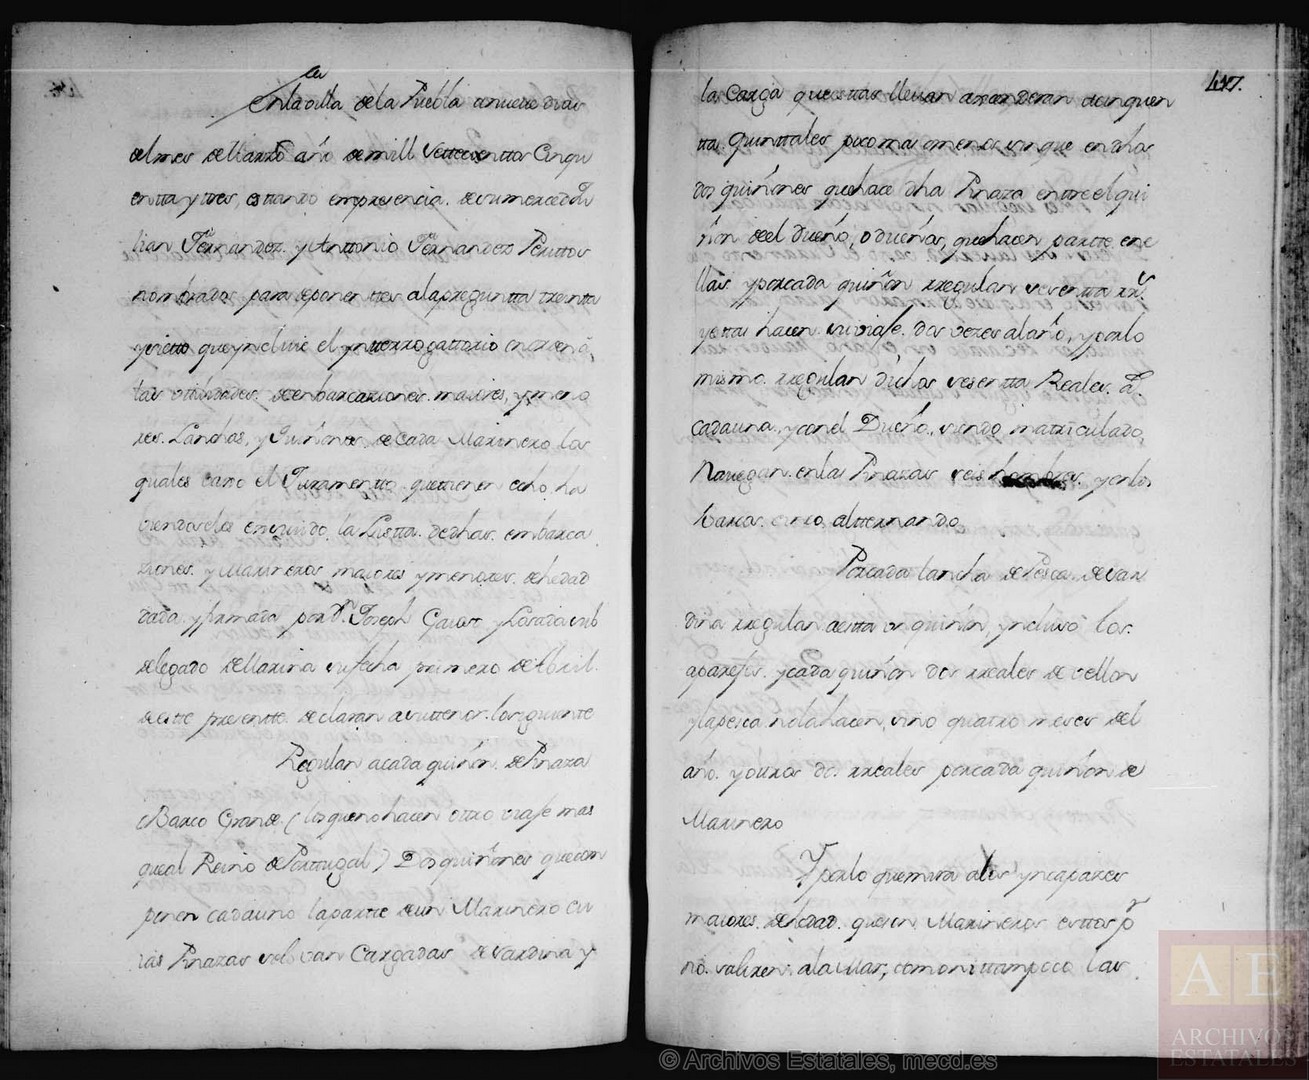 En la villa de la Puebla a nuebe dias
del mes de Marzo año de mill settezientos Cinqu
entta y tres, esttando empresencia de su merced Dn Ju
lian Fernandez y Anttonio Fernandez Perittos
nombrados para deponer ttes a la preguntta treinta
y siette que yncluie el ynterrogattorio en orden a
las utilidades de embarcaziones maiores, y meno
res Lanchas, y Quiñones de cada Marinero los
quales bajo el Juramentto que ttienen echo, ha
viendoseles enseñado la Listta de dhas embarca
ziones y Marineros maiores y menores de hedad
dada y firmada por Dn Joseph Gaiosr y Losada sub
delegado de Marina su fecha primero de Abril
de estte presentte declaran a su ttenor lo siguiente
Regulan a cada quiñon de Pinaza
o Barco Grande (los que no hacen ottro viaje mas
que al Reino de Porttugal) Dos quiñones que com
ponen cada uno la partte de un Marinero cu
ias Pinazas solo van Cargadas de sardina y
la Carga que esttas lleban azenderan a cinquen
tta quinttales poco mas o menos sin que en dhos
dos quiñones que hace dha Pinaza entre el qui
ñon de el dueño, o dueños, que hacen partte en e
llas y por cada quiñon rregulan sesentta rrs
y estas hacen su viaje dos vezes al año, y por lo
mismo rregulan dichos sesentta Reales a
cada una, y con el Dueño, siendo matriculado,
Navegan en las Pinazas seis hombres y en los
barcos cinco altternando
Por cada lancha de Pesca de sar
dina rregulan a estta un quiñon, yncluso los
aparejos y cada quiñon dos rreales de vellon
y la pesca no la hacen, sino quatro meses del
año y ottros dos rreales por cada quiñon de
Marinero
Y por lo que mira a los yncapaces
maiores de hedad que son Marineros esttos pr
no salir en a la Mar, como ni ttampoco las
447.
© Archivos Estatales, mecd.es
AE
ARCHIVOS
ESTATALES